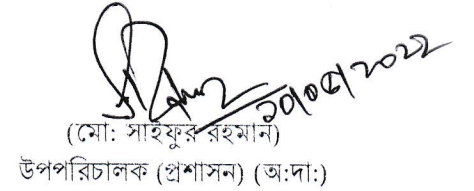 ২০/০৬/২০২২
(মো: সাইফুর রহমান)
উপপরিচালক (প্রশাসন) (অ:দা:)